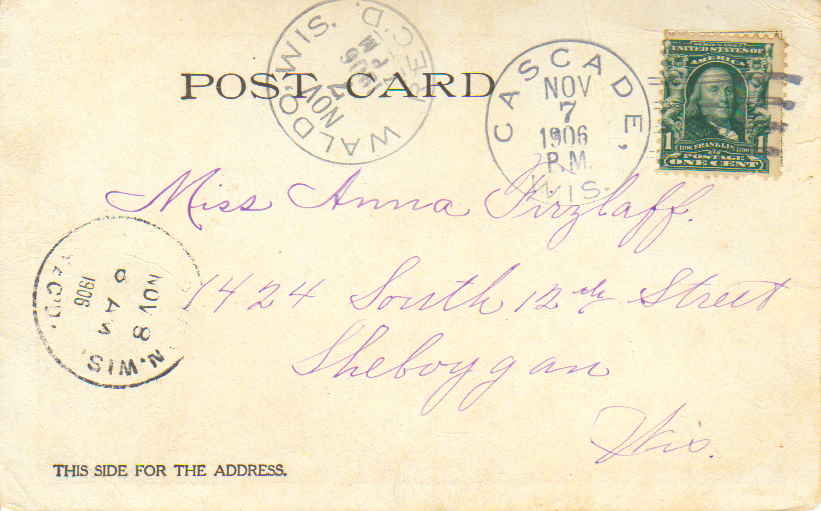 POST CARD
WALDO, WIS.
NOV
7
PM
1906
REC'D.
CASCADE,
NOV
7
1906
P.M.
WIS.
UNITED STATES OF
AMERICA
1 1
POSTAGE
ONE CENT
Miss Anna Firzlaff.
1424 South 12th Street
Sheboygan
Wis.
N. WIS.
NOV 8
6 AM
1906
REC'D.
THIS SIDE FOR THE ADDRESS.